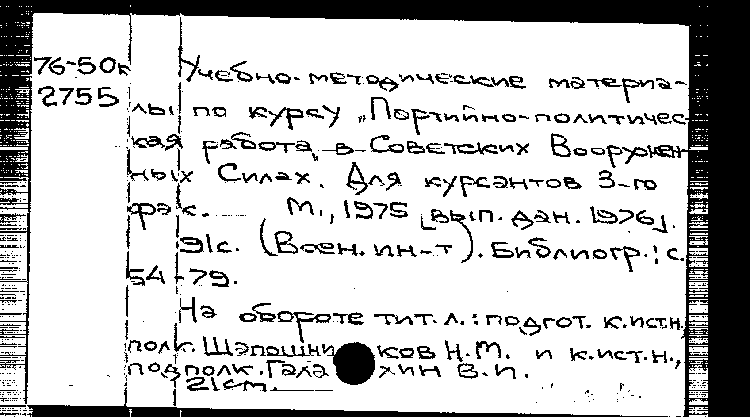 76-50к Учебно-методические материа-
2755 лы по курсу „Портийно-политичес-
кая работа„ в Советских Вооружен-
ных Силах. Для курсантов 3-го
фак. М., 1975 [вып. дан. 1976].
91с. (Воен. ин-т). Библиогр.: с.
54-79.
На обороте тит. л.: подгот. к.ист.н,
полк. Шапошников Н.М. и к.ист.н.,
подполк. Галахин В.П.
21см.